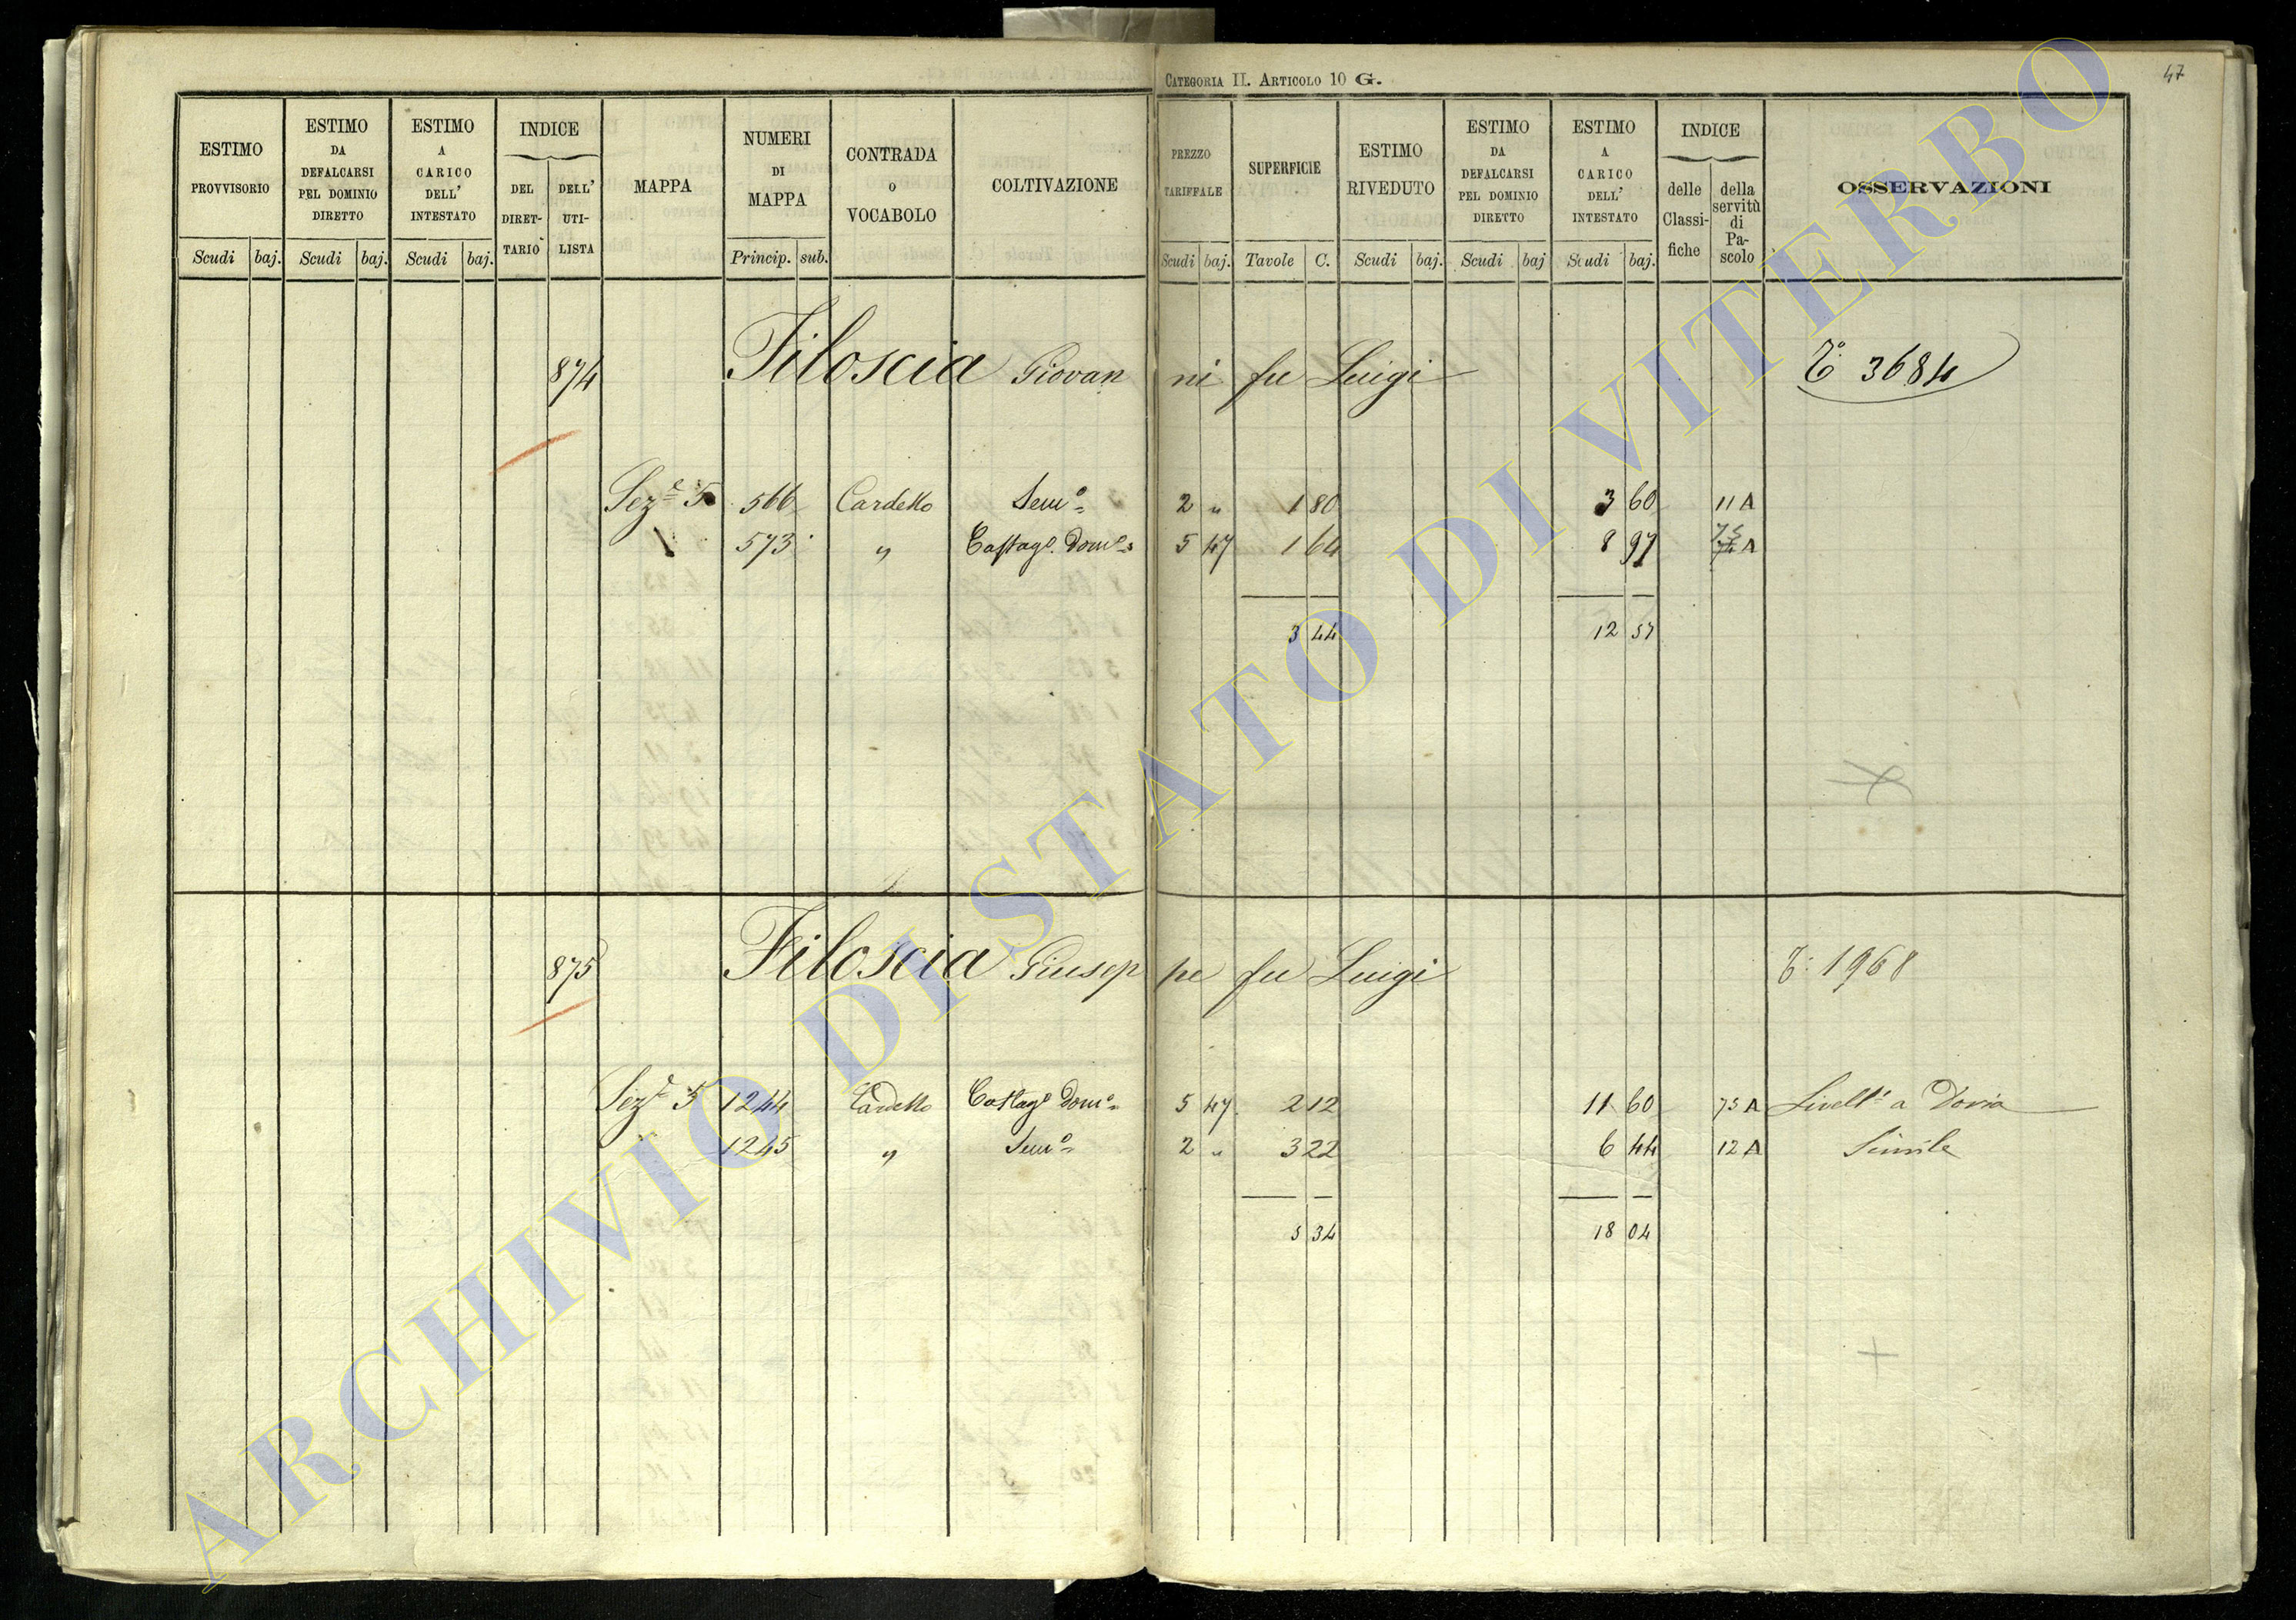 CATEGORIA II. ARTICOLO 10 G.
47
ESTIMO PROVVISORIO
Scudi baj.
ESTIMO DA DEFALCARSI PEL DOMINIO DIRETTO
Scudi baj.
ESTIMO A CARICO DELL' INTESTATO
Scudi baj.
INDICE
DEL DIRET-TARIO
DELL' UTI-LISTA
MAPPA
NUMERI DI MAPPA
Princip. sub.
CONTRADA O VOCABOLO
COLTIVAZIONE
PREZZO TARIFFALE
Scudi baj.
SUPERFICIE
Tavole C.
ESTIMO RIVEDUTO
Scudi baj.
ESTIMO DA DEFALCARSI PEL DOMINIO DIRETTO
Scudi baj
ESTIMO A CARICO DELL' INTESTATO
Scudi baj.
INDICE
delle Classi-fiche
della servitù di Pa-scolo
OSSERVAZIONI
874 Filoscia Giovanni fu Luigi Tº: 3684
Sezᵉ 5 566 Cardello Semº 2 „ 1 80 3 60 11 A
573 „ Castagº. Domº 5 47 1 64 8 97 75 A
3 44 12 57
875 Filoscia Giuseppe fu Luigi T: 1968
Sezᵉ 5 1244 Cardello Castagº Domº 5 47 2 12 11 60 75 A Livellº a Doria
1245 „ Semº 2 „ 3 22 6 44 12 A Simile
5 34 18 04
ARCHIVIO DI STATO DI VITERBO